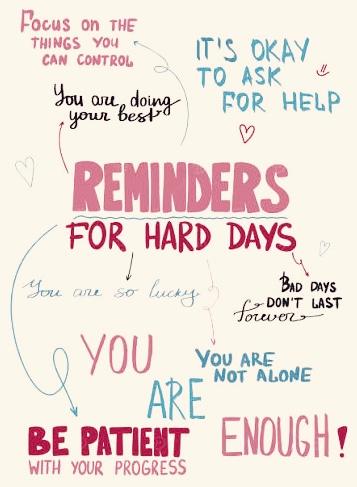 Focus on the
things you
can control
It's okay
to ask
for help
You are doing
your best
REMINDERS
FOR HARD DAYS
You are so lucky
Bad days
don't last
forever
You are
not alone
YOU
ARE
ENOUGH!
BE PATIENT
WITH YOUR PROGRESS